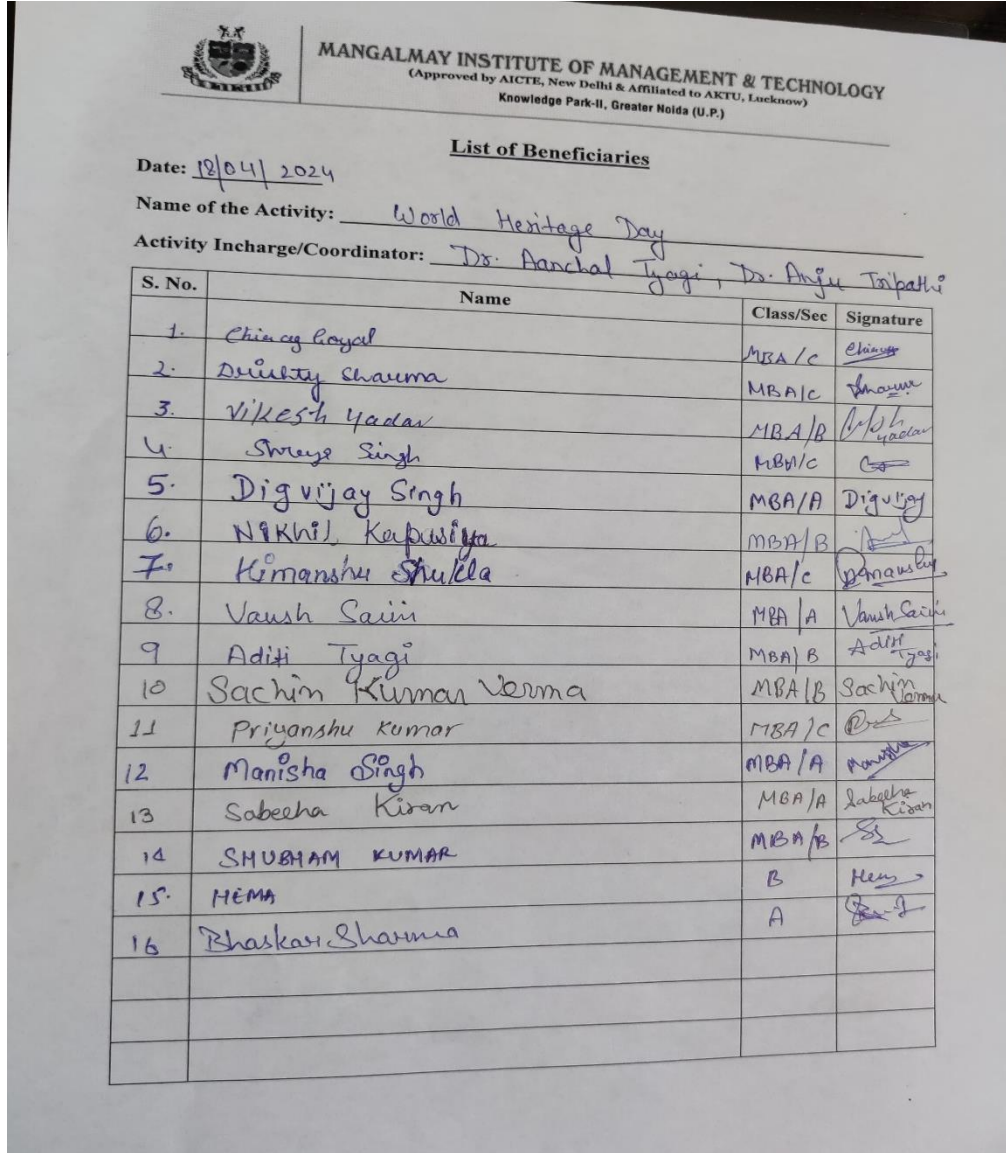 MANGALMAY INSTITUTE OF MANAGEMENT & TECHNOLOGY
(Approved by AICTE, New Delhi & Affiliated to AKTU, Lucknow)
Knowledge Park-II, Greater Noida (U.P.)
List of Beneficiaries
Date: 18/04/2024
Name of the Activity: World Heritage Day
Activity Incharge/Coordinator: Dr. Aanchal Tyagi, Dr. Anju Tripathi
S. No. Name Class/Sec Signature
1. Chirag Goyal MBA/C Chirag
2. Drishty Sharma MBA/C Sharma
3. Vikesh Yadav MBA/B Yadav
4. Shreya Singh MBA/C
5. Digvijay Singh MBA/A Digvijay
6. Nikhil MBA/B
7. Himanshu Shukla MBA/C Himanshu
8. Vansh Saini MBA/A Vansh Saini
9 Aditi Tyagi MBA/B Aditi Tyagi
10 Sachin Kumar Verma MBA/B Sachin Verma
11 Priyanshu Kumar MBA/C
12 Manisha Singh MBA/A Manisha
13 Sabeeha Kiran MBA/A Sabeeha Kiran
14 SHUBHAM KUMAR MBA/B
15. HEMA B Hema
16 Bhaskar Sharma A